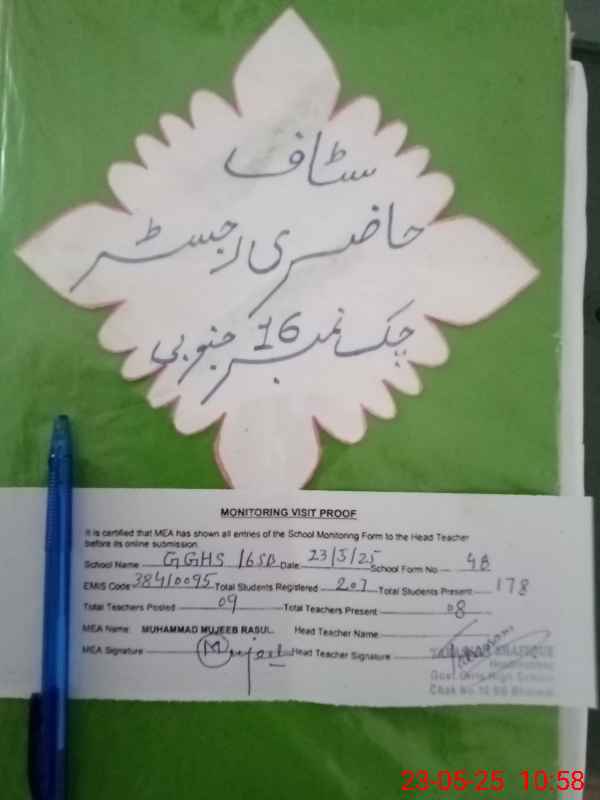 سٹاف
حاضری رجسٹر
چک نمبر 16 جنوبی
MONITORING VISIT PROOF
It is certified that MEA has shown all entries of the School Monitoring Form to the Head Teacher
before its online submission.
School Name GGHS 16SB Date 23/5/25 School Form No 48
EMIS Code 38410095 Total Students Registered 207 Total Students Present 178
Total Teachers Posted 09 Total Teachers Present 08
MEA Name: MUHAMMAD MUJEEB RASUL. Head Teacher Name
MEA Signature Mujeeb Head Teacher Signature
Headmistress
Govt. Girls High School
Chak No.16 SB Bhalwal
23-05-25 10:58